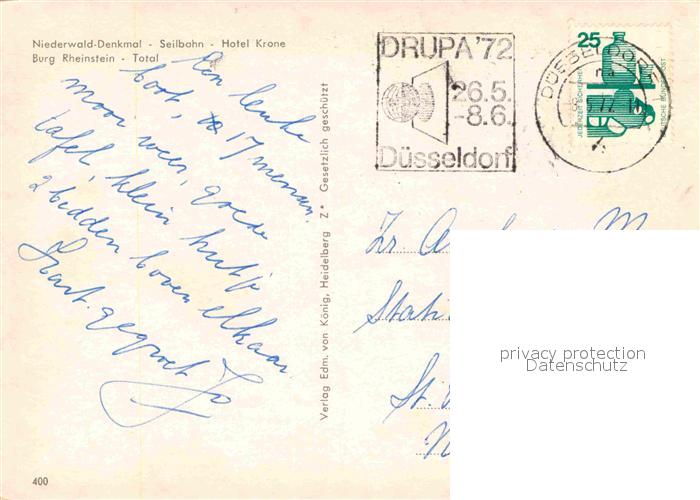 Niederwald-Denkmal - Seilbahn - Hotel Krone
Burg Rheinstein - Total
Een leuke
boot, 17 mensen.
mooi weer, goede
tafel, klein hutje
2 bedden boven elkaar
Hart. gegroet Jo
Verlag Edm. von König, Heidelberg Z* Gesetzlich geschützt
400
DRUPA '72
26.5.
-8.6.
Düsseldorf
25
JEDERZEIT SICHERHEIT
DEUTSCHE BUNDESPOST
DÜSSELDORF
Zr
Stati
St.
privacy protection
Datenschutz